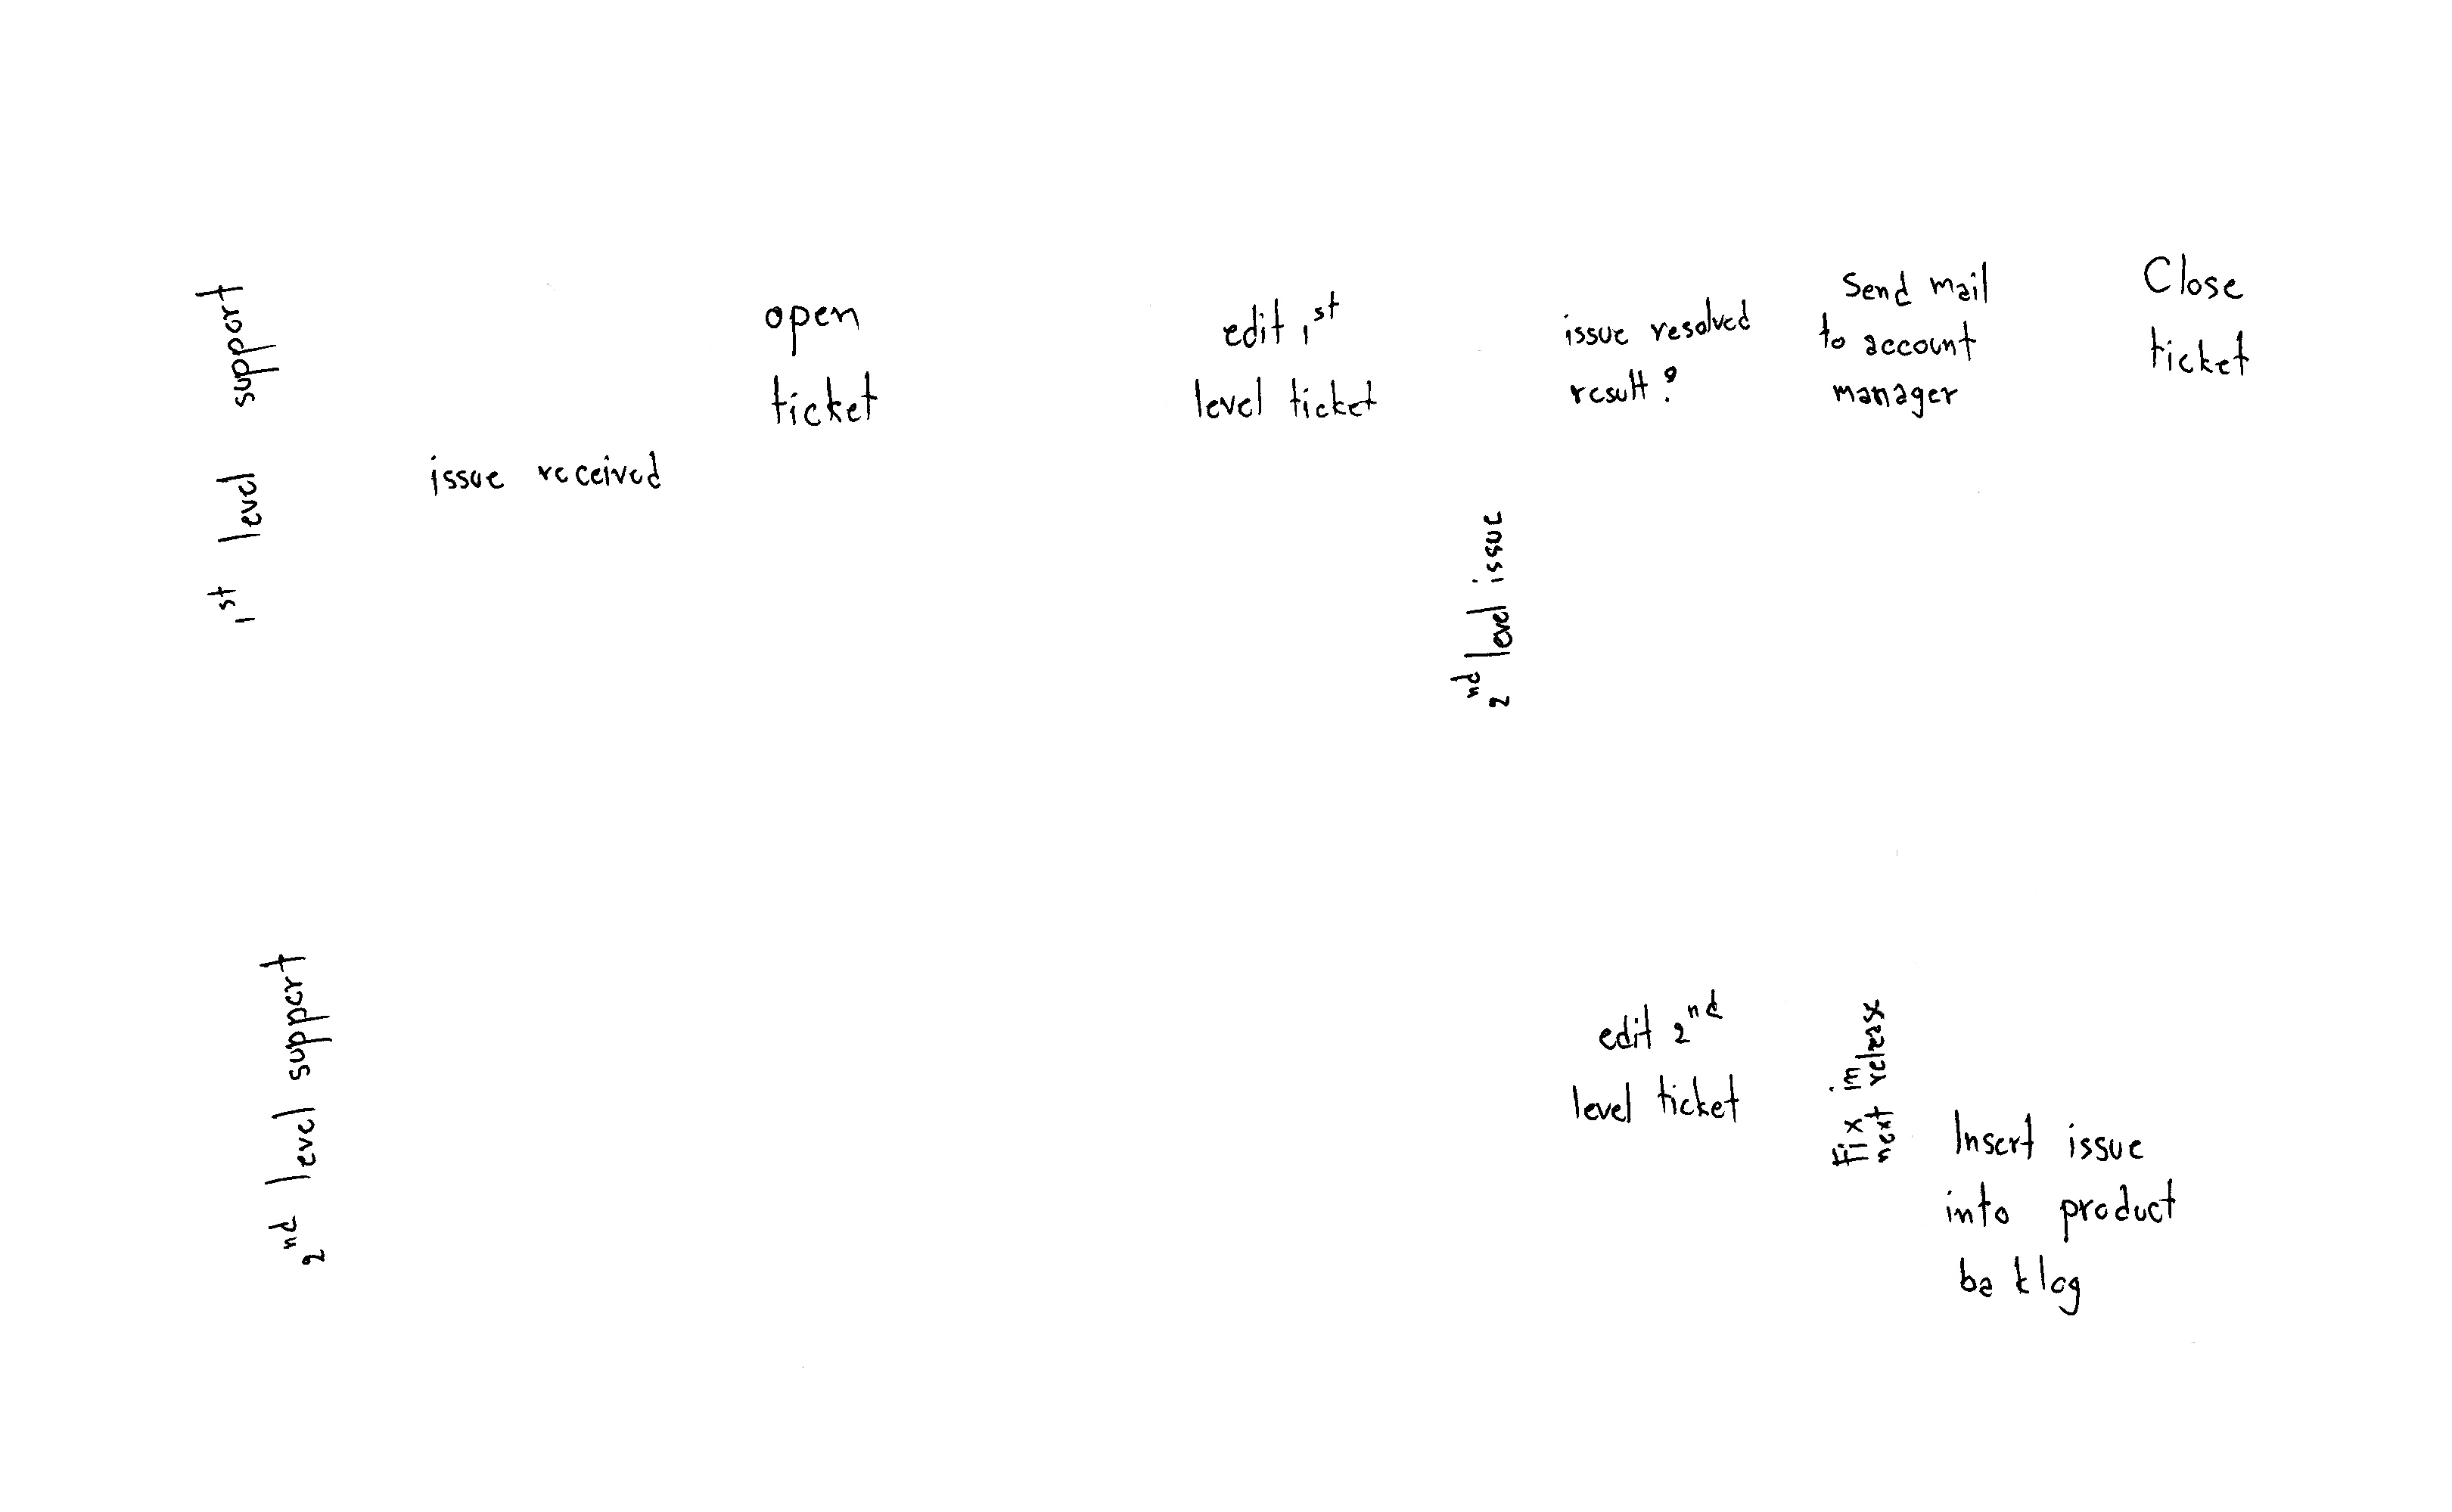 1st level support
issue received
open
ticket
edit 1st
level ticket
2nd level issue
issue resolved
result?
Send mail
to account
manager
Close
ticket
2nd level support
edit 2nd
level ticket
Fix in
next release
Insert issue
into product
backlog